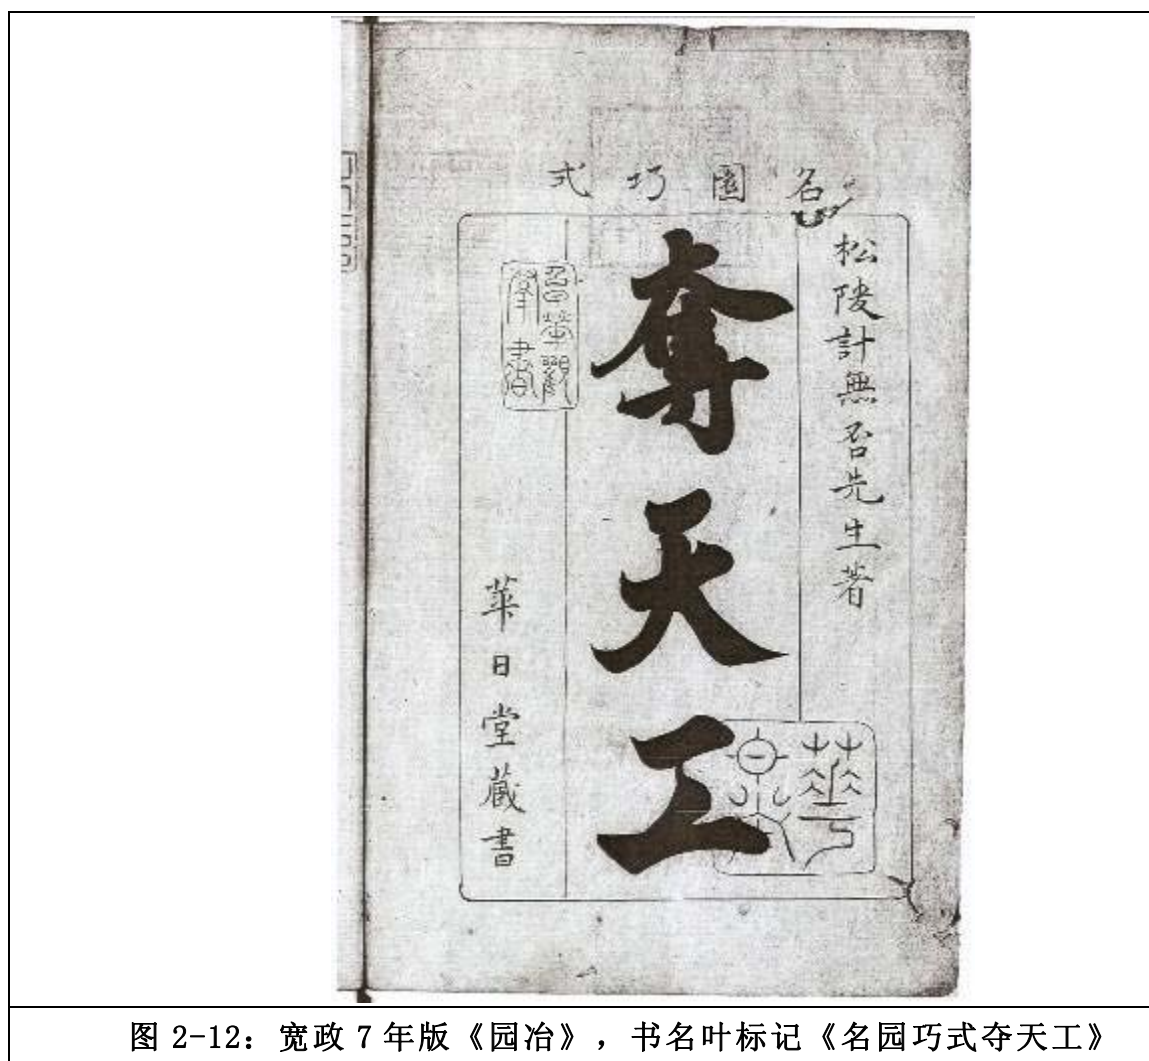 名園巧式
松陵計無否先生著
奪天工
華日堂藏書
图 2-12：宽政 7 年版《园冶》，书名叶标记《名园巧式夺天工》